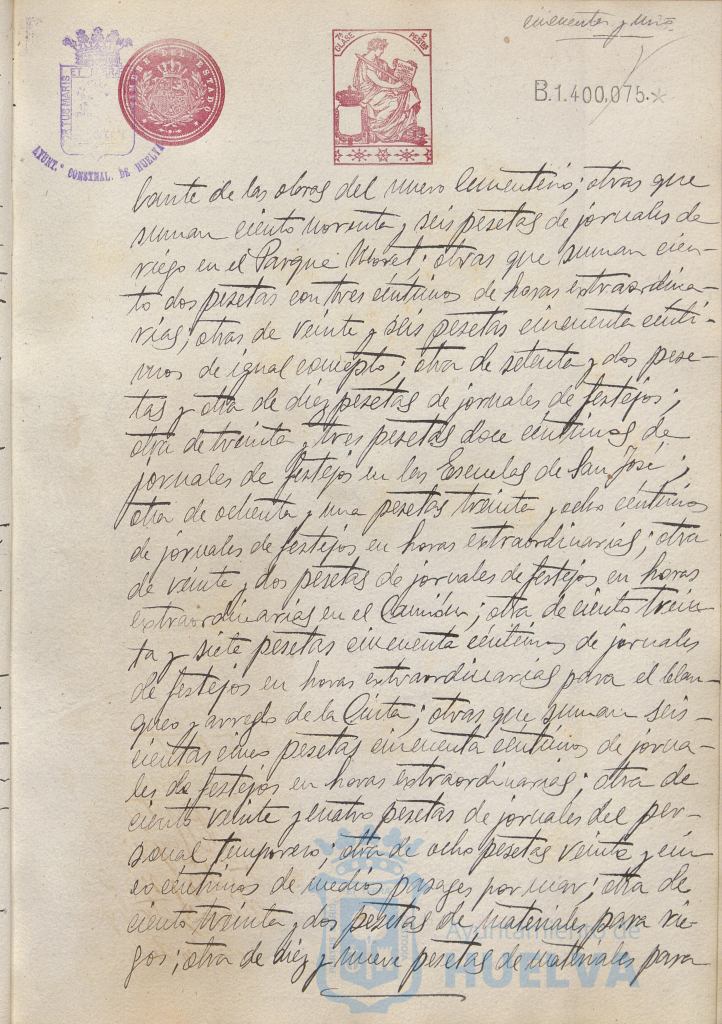 cincuenta y uno
7ª CLASE 2 PESETAS
TIMBRE DEL ESTADO
AYUNT.º CONSTNAL. DE HUELVA
B.1.400,075
lante de las obras del nuevo Cementerio; otras que
suman ciento noventa y seis pesetas de jornales de
riego en el Parque Moret; otras que suman cien-
to dos pesetas con tres céntimos de horas extraordina-
rias; otras de veinte y seis pesetas cincuenta cénti-
mos de igual concepto; otra de setenta y dos pese-
tas y otra de diez pesetas de jornales de festejos;
otra de treinta y tres pesetas doce céntimos de
jornales de festejos en las Escuelas de San José;
otra de ochenta y una pesetas treinta y ocho céntimos
de jornales de festejos en horas extraordinarias; otra
de veinte y dos pesetas de jornales de festejos en horas
extraordinarias en el Camión; otra de ciento trein-
ta y siete pesetas cincuenta céntimos de jornales
de festejos en horas extraordinarias para el blan-
queo y arreglo de la Cinta; otras que suman seis-
cientas cinco pesetas cincuenta céntimos de jorna-
les de festejos en horas extraordinarias; otra de
ciento veinte y cuatro pesetas de jornales del per-
sonal temporero; otra de ocho pesetas veinte y cin-
co céntimos de medios pasages por mar; otra de
ciento treinta y dos pesetas de materiales para rie-
gos; otra de diez y nueve pesetas de materiales para
Ayuntamiento de
HUELVA